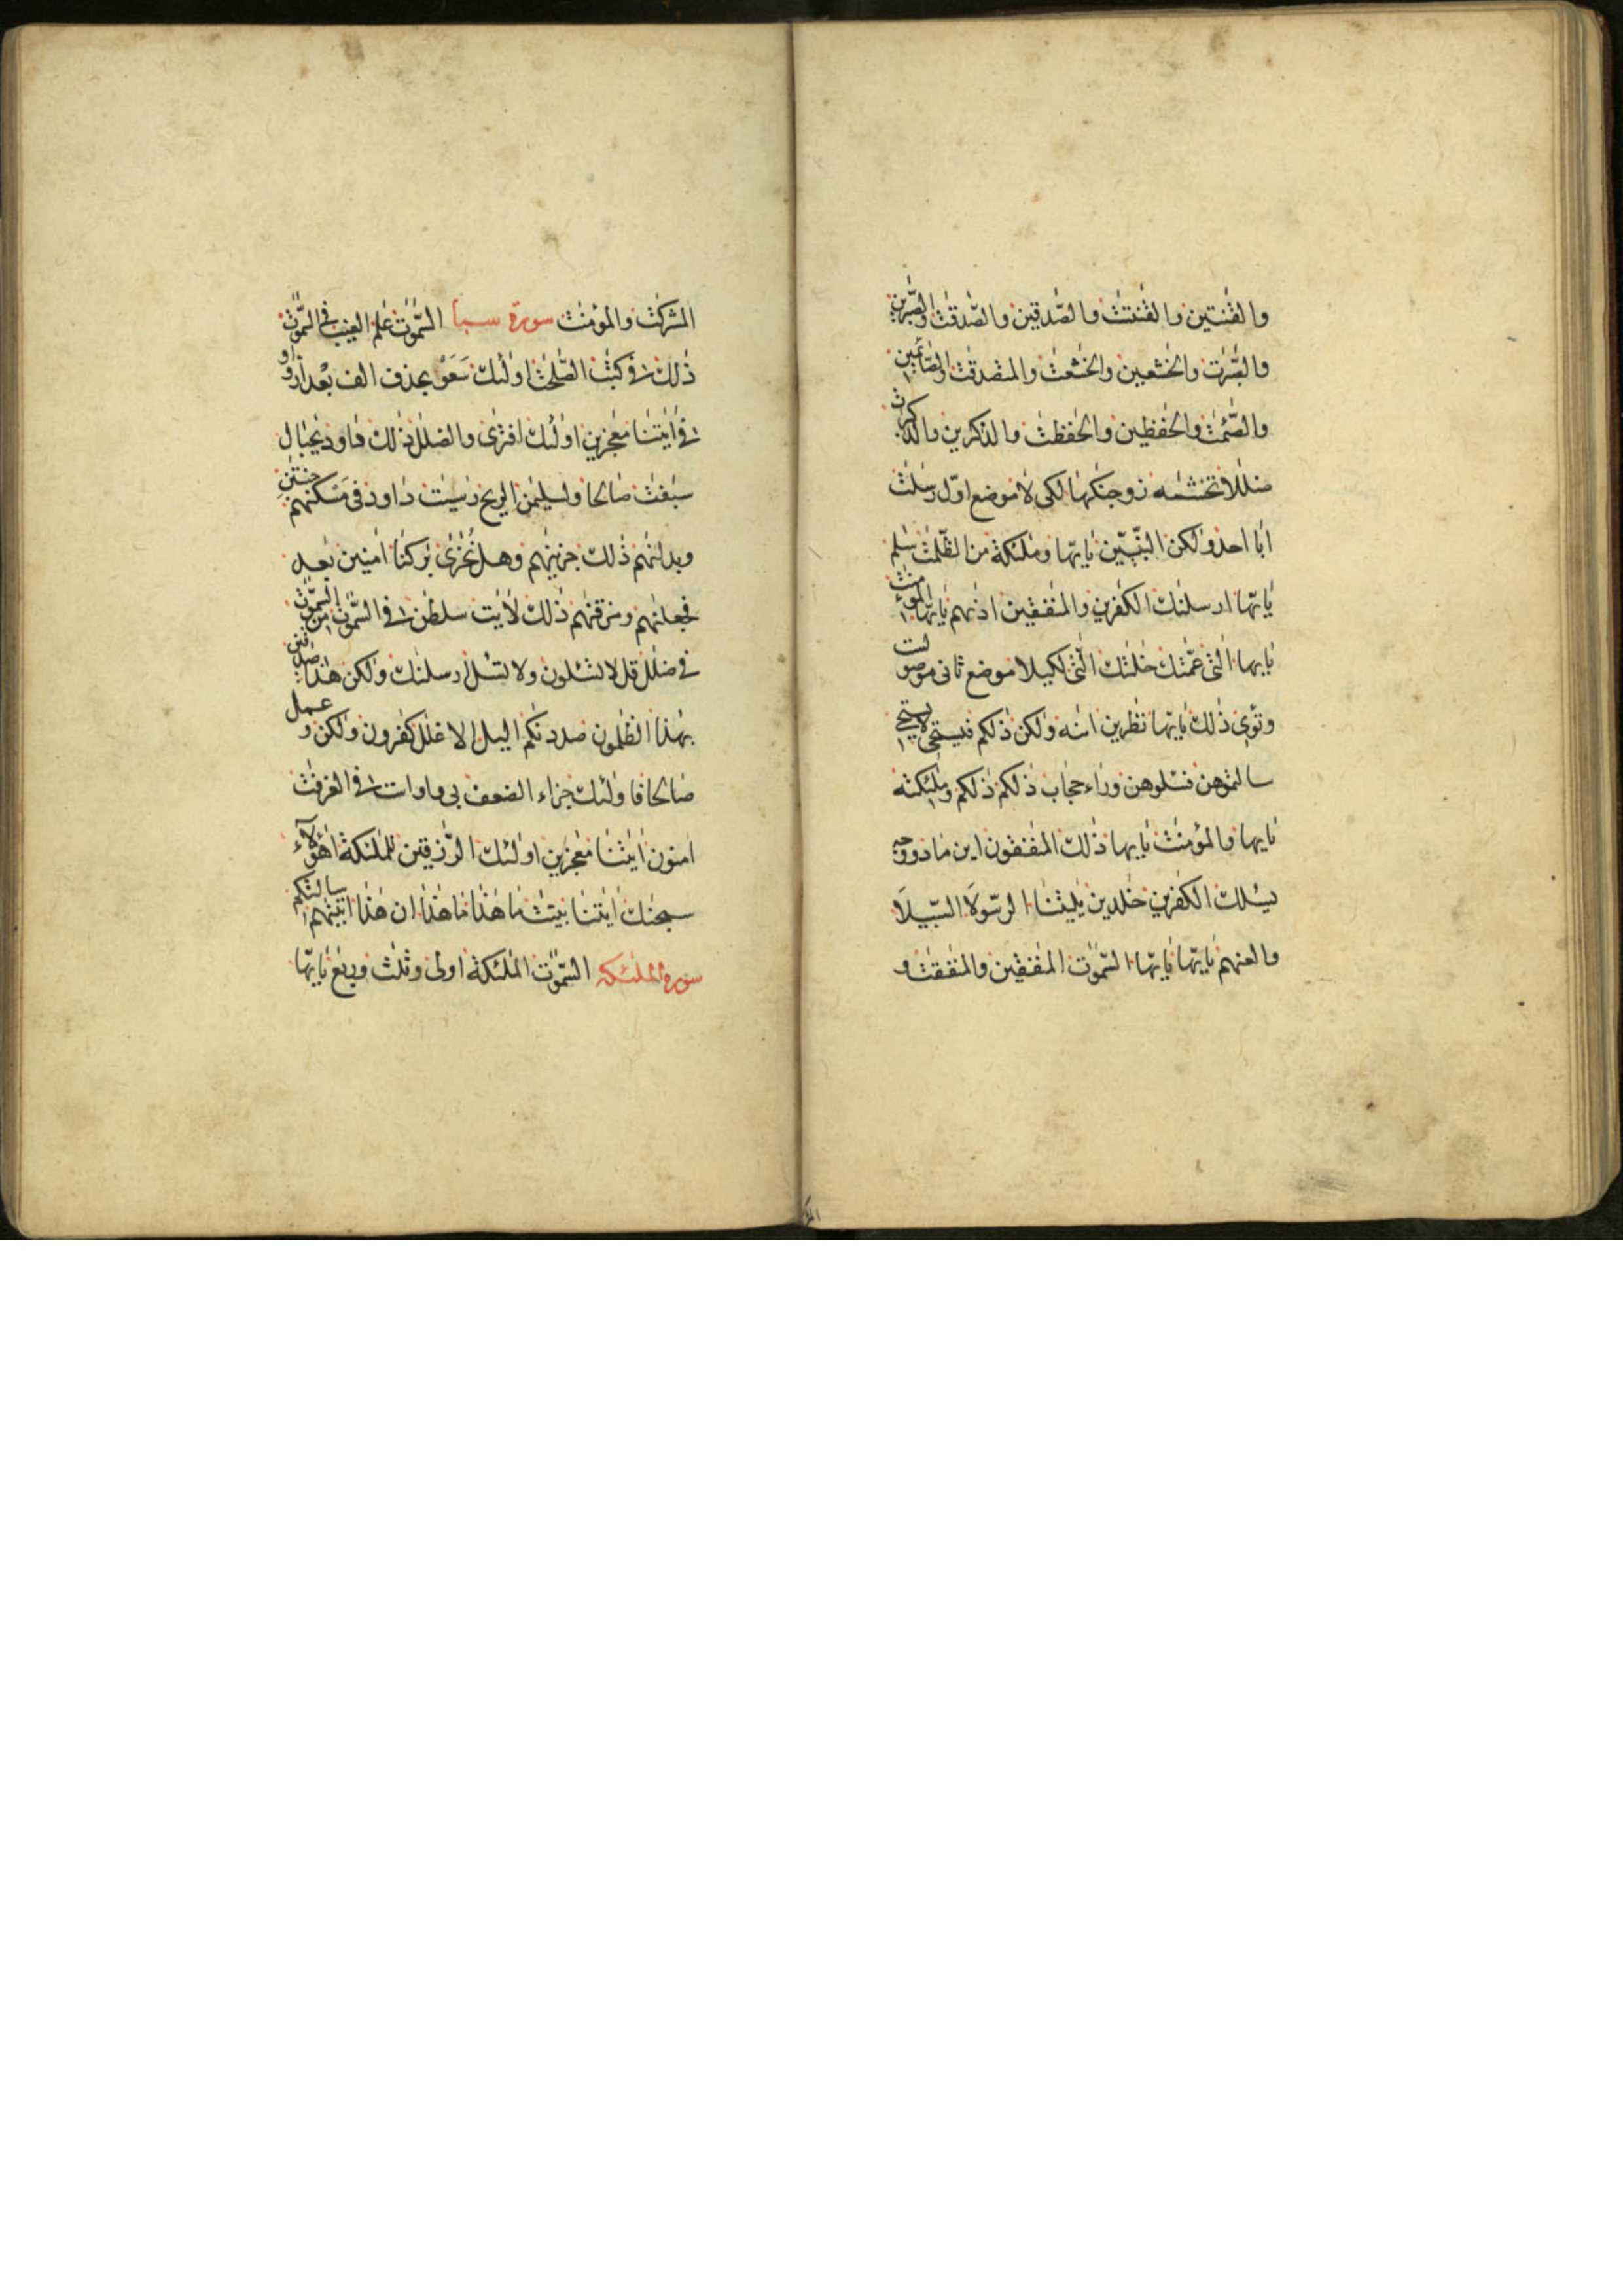 والقنتين والقنتت والصدقين والصدقت والصبرين
والصبرت والخشعين والخشعت والمتصدقت والصائمين
والصئمت والحفظين والحفظت والذكرين والذكرت
ضللا تخشيه زوجنكها لكى لا موضع اوّل رسلت
ابا احد ولكن النبيّين يايّها وملئكة من الظلمت سلم
يايّها ارسلنك الكفرين والمنفقين اذىهم يايّها المؤمنت
يايها التى عمتك خلتك التى لكيلا موضع ثانى موصولت
وتؤى ذلك يايّها نظرين انىه ولكن ذلكم فيستحى لا يستحى
سالتموهن فسئلوهن وراء حجاب ذلكم ذلكم وملئكته
يايها والمؤمنت يايها ذلك المنفقون اين ما
يسئلك الكفرين خلدين يليتنا الرسولا السبيلا
والعنهم يايّها يايّها السّموت المنفقين والمنفقت و
المشركت والمؤمنت سورة سبا السّموت علم الغيب فى السّموت
ذلك فى كتب الصّلحت اولئك سعو بحذف الف بعد واو
فى ايتنا معجزين اولئك افترى والضلل ذلك داود يجبال
سبغت صالحا ولسليمن الريح رسيت داود فى مسكنهم جنتين
وبدلنهم ذلك جزينهم وهل نجزى بركنا امنين بعد
فجعلنهم ومزقنهم ذلك لايت سلطن فى السّموت من السّموت
فى ضلل قل لا تسئلون ولا نسئل ارسلنك ولكن هذا صدقين
بهذا الظلمون صددنكم اليل الا غلل كفرون ولكن وعمل
صالحا فاولئك جزاء الضعف بى واو است فى الغرفت
امنون ايتنا معجزين اولئك الرّزقين للملئكة اهؤلاء
سبحنك ايتنا بينت ما هذا ما هذا ان هذا اتينهم
سورة الملئكة السّموت الملئكة اولى وثلث وربع يايّها